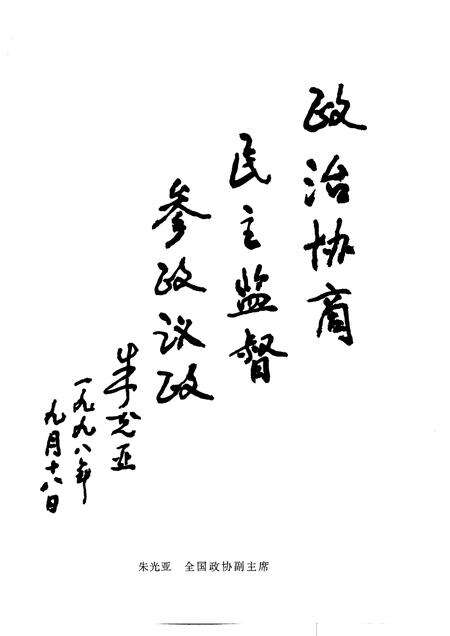 政治协商
民主监督
参政议政
朱光亚
一九九八年
九月十八日
朱光亚 全国政协副主席